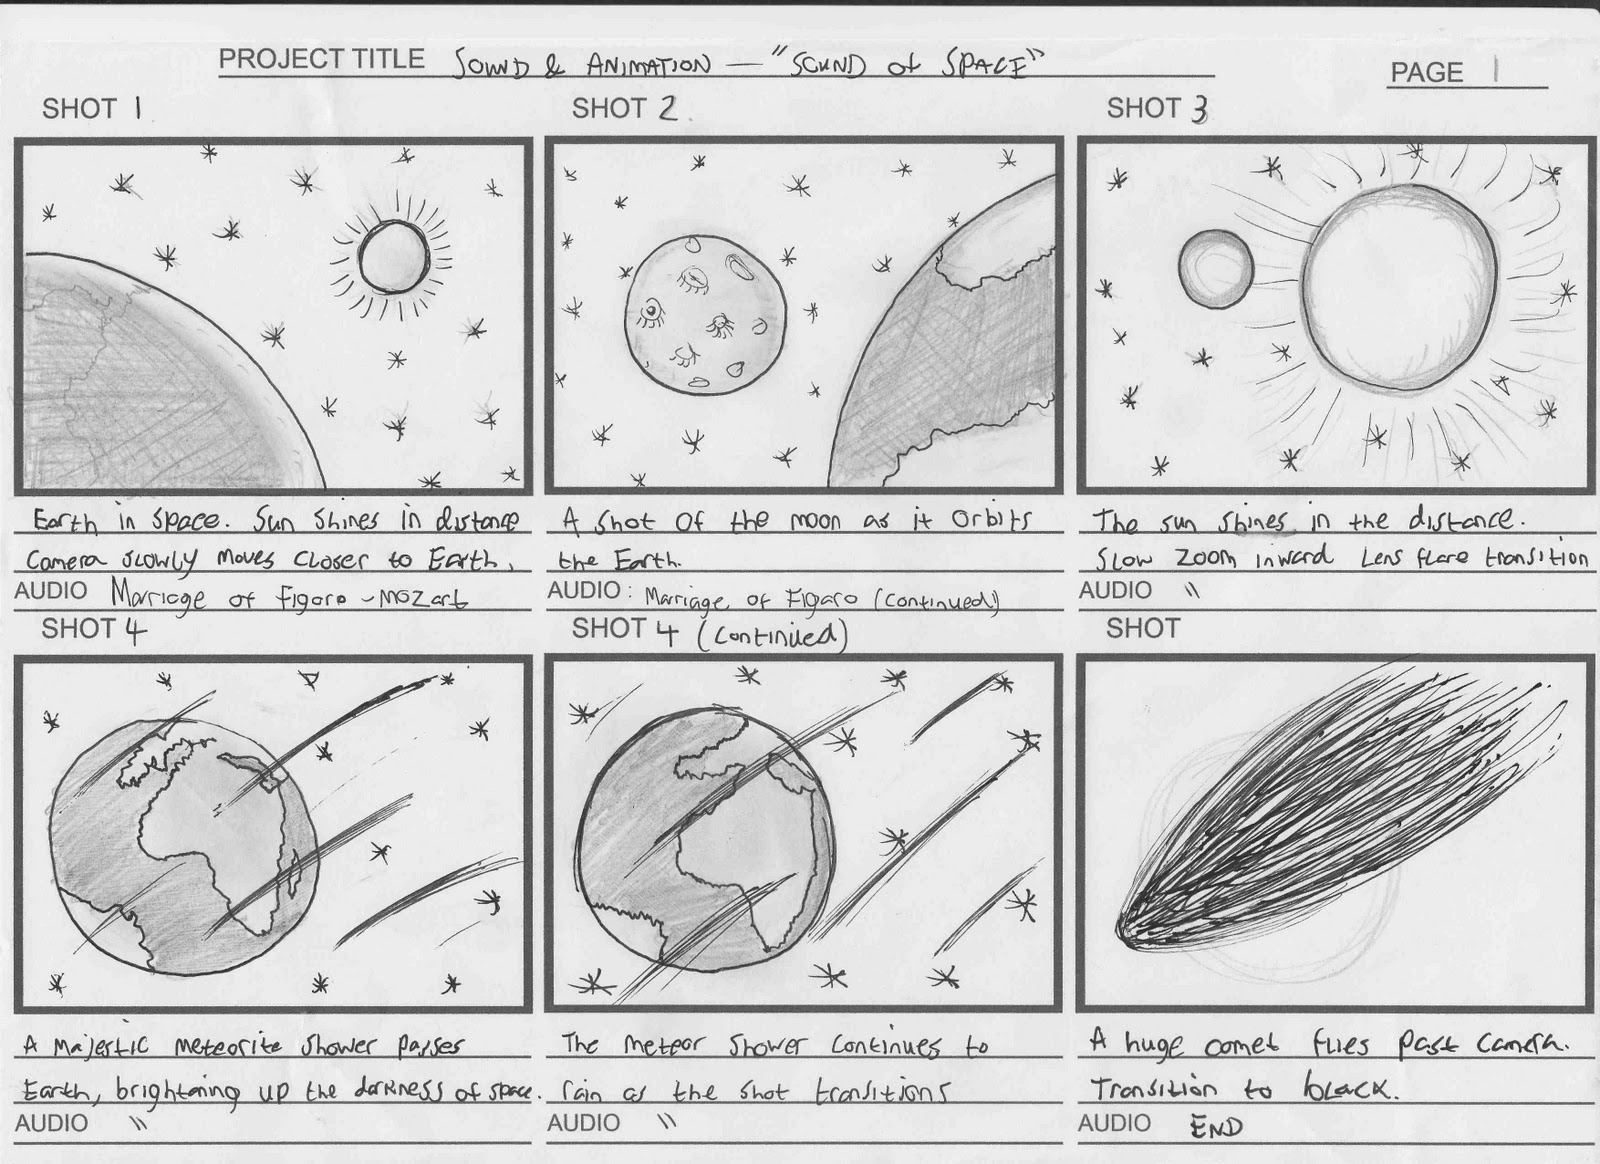 PROJECT TITLE SOUND & ANIMATION — "SOUND of SPACE"
PAGE 1
SHOT 1
SHOT 2
SHOT 3
Earth in space. Sun shines in distance
Camera slowly moves closer to Earth.
AUDIO Marriage of Figaro - Mozart
A shot of the moon as it orbits
the Earth.
AUDIO : Marriage of Figaro (continued)
The sun shines in the distance.
Slow zoom inward Lens flare transition
AUDIO "
SHOT 4
SHOT 4 (continued)
SHOT
A majestic meteorite shower passes
Earth, brightening up the darkness of space.
AUDIO "
The meteor shower continues to
rain as the shot transitions
AUDIO "
A huge comet flies past camera.
Transition to black.
AUDIO END